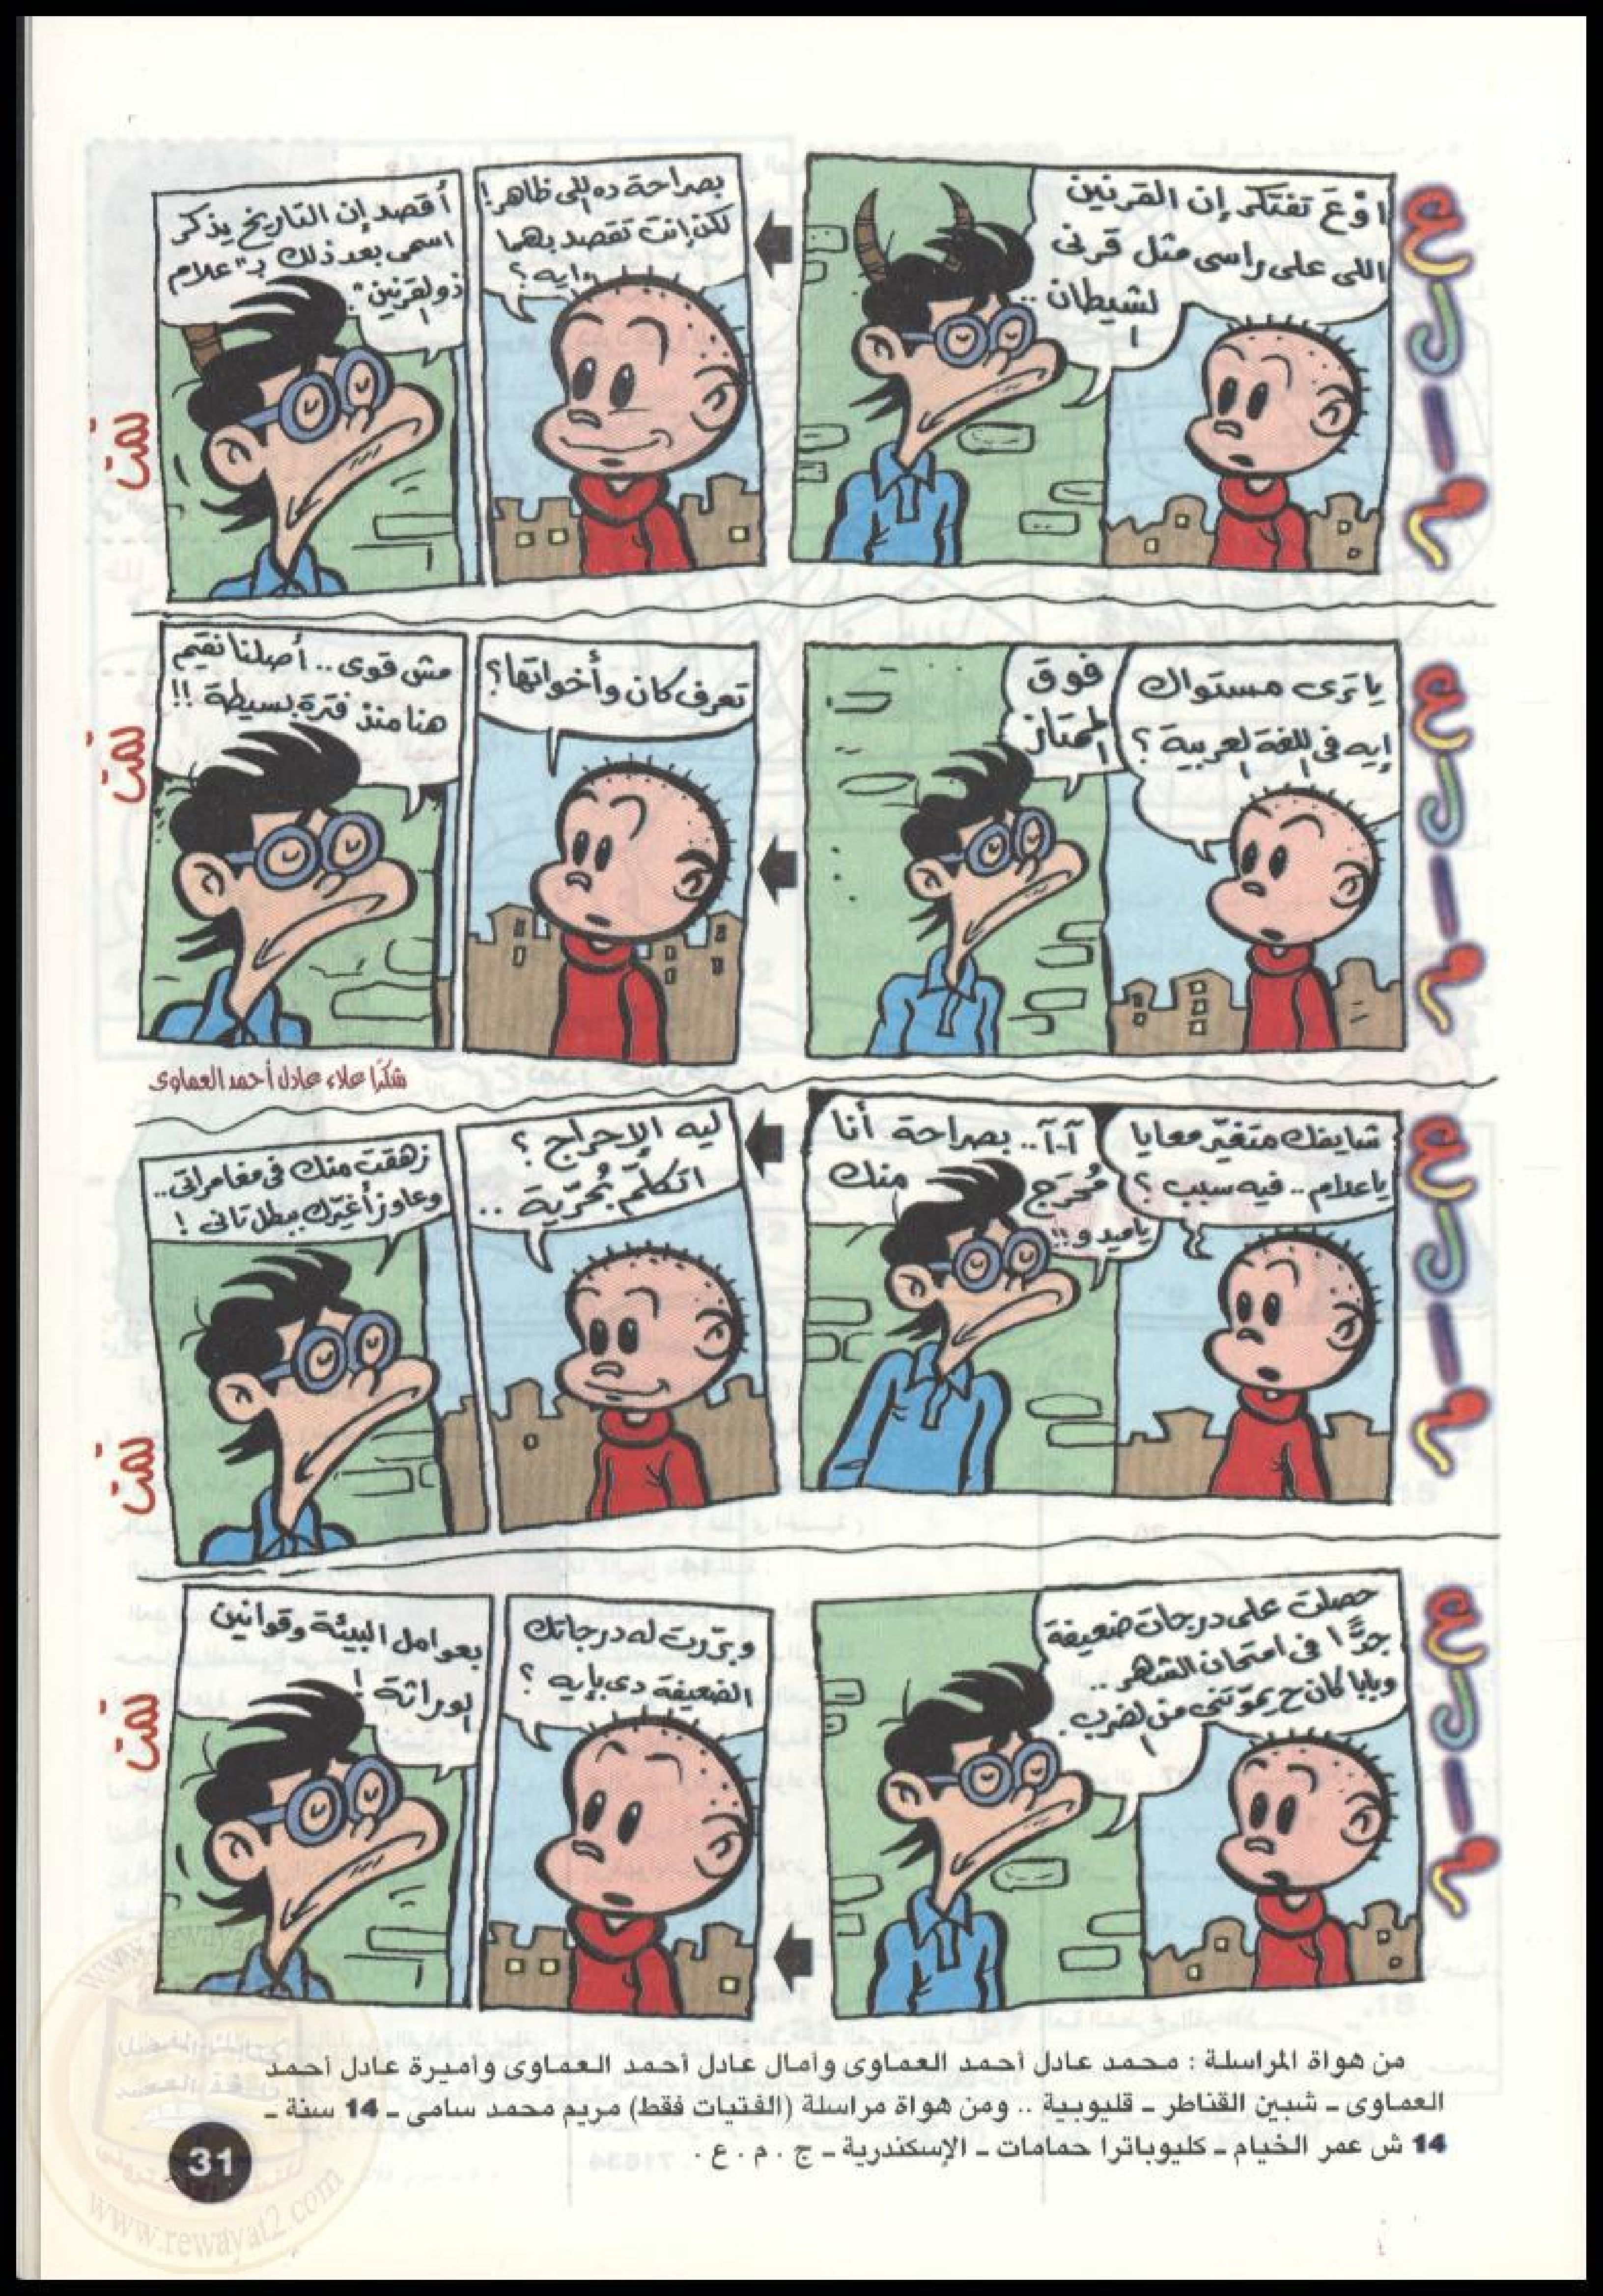 ع-د-ا-م
اوْعَ تفتكر إن القرنين
اللى على راسى مثل قرنى
الشيطان ..
بصراحة ده اللى ظاهر!
لكن إنت تقصد بهما
إيه؟
أقصد إن التاريخ يذكر
اسمى بعد ذلك بـ "علام
ذو القرنين".
تمت
يا ترى مستواك
إيه فى اللغة العربية؟
فوق
الممتاز
تعرف كان وأخواتها؟
مش قوى .. أصلنا نقيم
هنا منذ فترة بسيطة !!
تمت
شكرًا علاء عادل أحمد العماوى
شايفك متغيّر معايا
ياعلام .. فيه سبب؟
آ-آ .. بصراحة أنا
مُحرَج منك
ياميدو !!
ليه الإحراج؟
اتكلّم بحُرّية ..
زهقت منك فى مغامراتى ..
وعاوز أغيّرك ببطل تانى !
تمت
حصلت على درجات ضعيفة
جدًّا فى امتحان الشهر ..
وبابا كان ح يموّتنى من الضرب.
وبرّرت له درجاتك
الضعيفة دى بإيه؟
بعوامل البيئة وقوانين
الوراثة !
تمت
من هواة المراسلة : محمد عادل أحمد العماوى وآمال عادل أحمد العماوى وأميرة عادل أحمد
العماوى ـ شبين القناطر ـ قليوبية .. ومن هواة مراسلة (الفتيات فقط) مريم محمد سامى ـ 14 سنة ـ
14 ش عمر الخيام ـ كليوباترا حمامات ـ الإسكندرية ـ ج . م . ع .
31
www.rewayat2.com